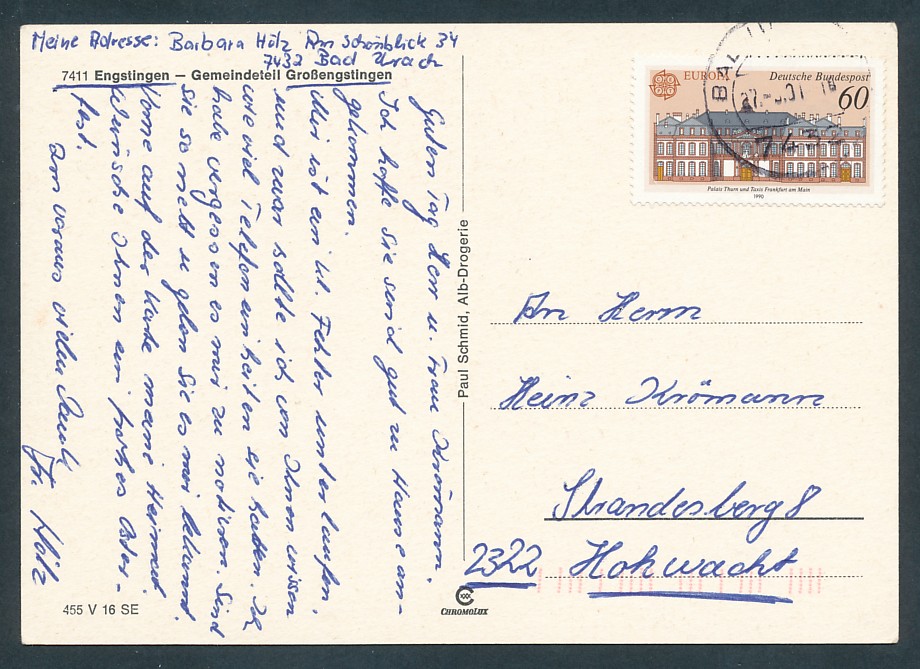 Meine Adresse: Barbara Hölz Am Schönblick 34
7432 Bad Urach
7411 Engstingen — Gemeindeteil Großengstingen
Guten Tag Herr u. Frau Krömann.
Ich hoffe Sie sind gut zu Hause an-
gekommen.
Mir ist ein kl. Fehler unterlaufen,
und zwar sollte ich von Ihnen wissen
wie viel Telefoneinheiten sie hatten. Ich
habe vergessen es mir zu notieren. Sind
Sie so nett u. geben Sie es mir bekannt.
Vorne auf der Karte meine Heimat.
Wünsche Ihnen ein frohes Oster-
fest.
Zum voraus vielen Dank
Fr. Hölz
455 V 16 SE
Paul Schmid, Alb-Drogerie
CHROMOLUX
EUROPA
Deutsche Bundespost
60
Palais Thurn und Taxis Frankfurt am Main
1990
BAD
743
An Herrn
Heinz Krömann
Strandesberg 8
2322 Hohwacht